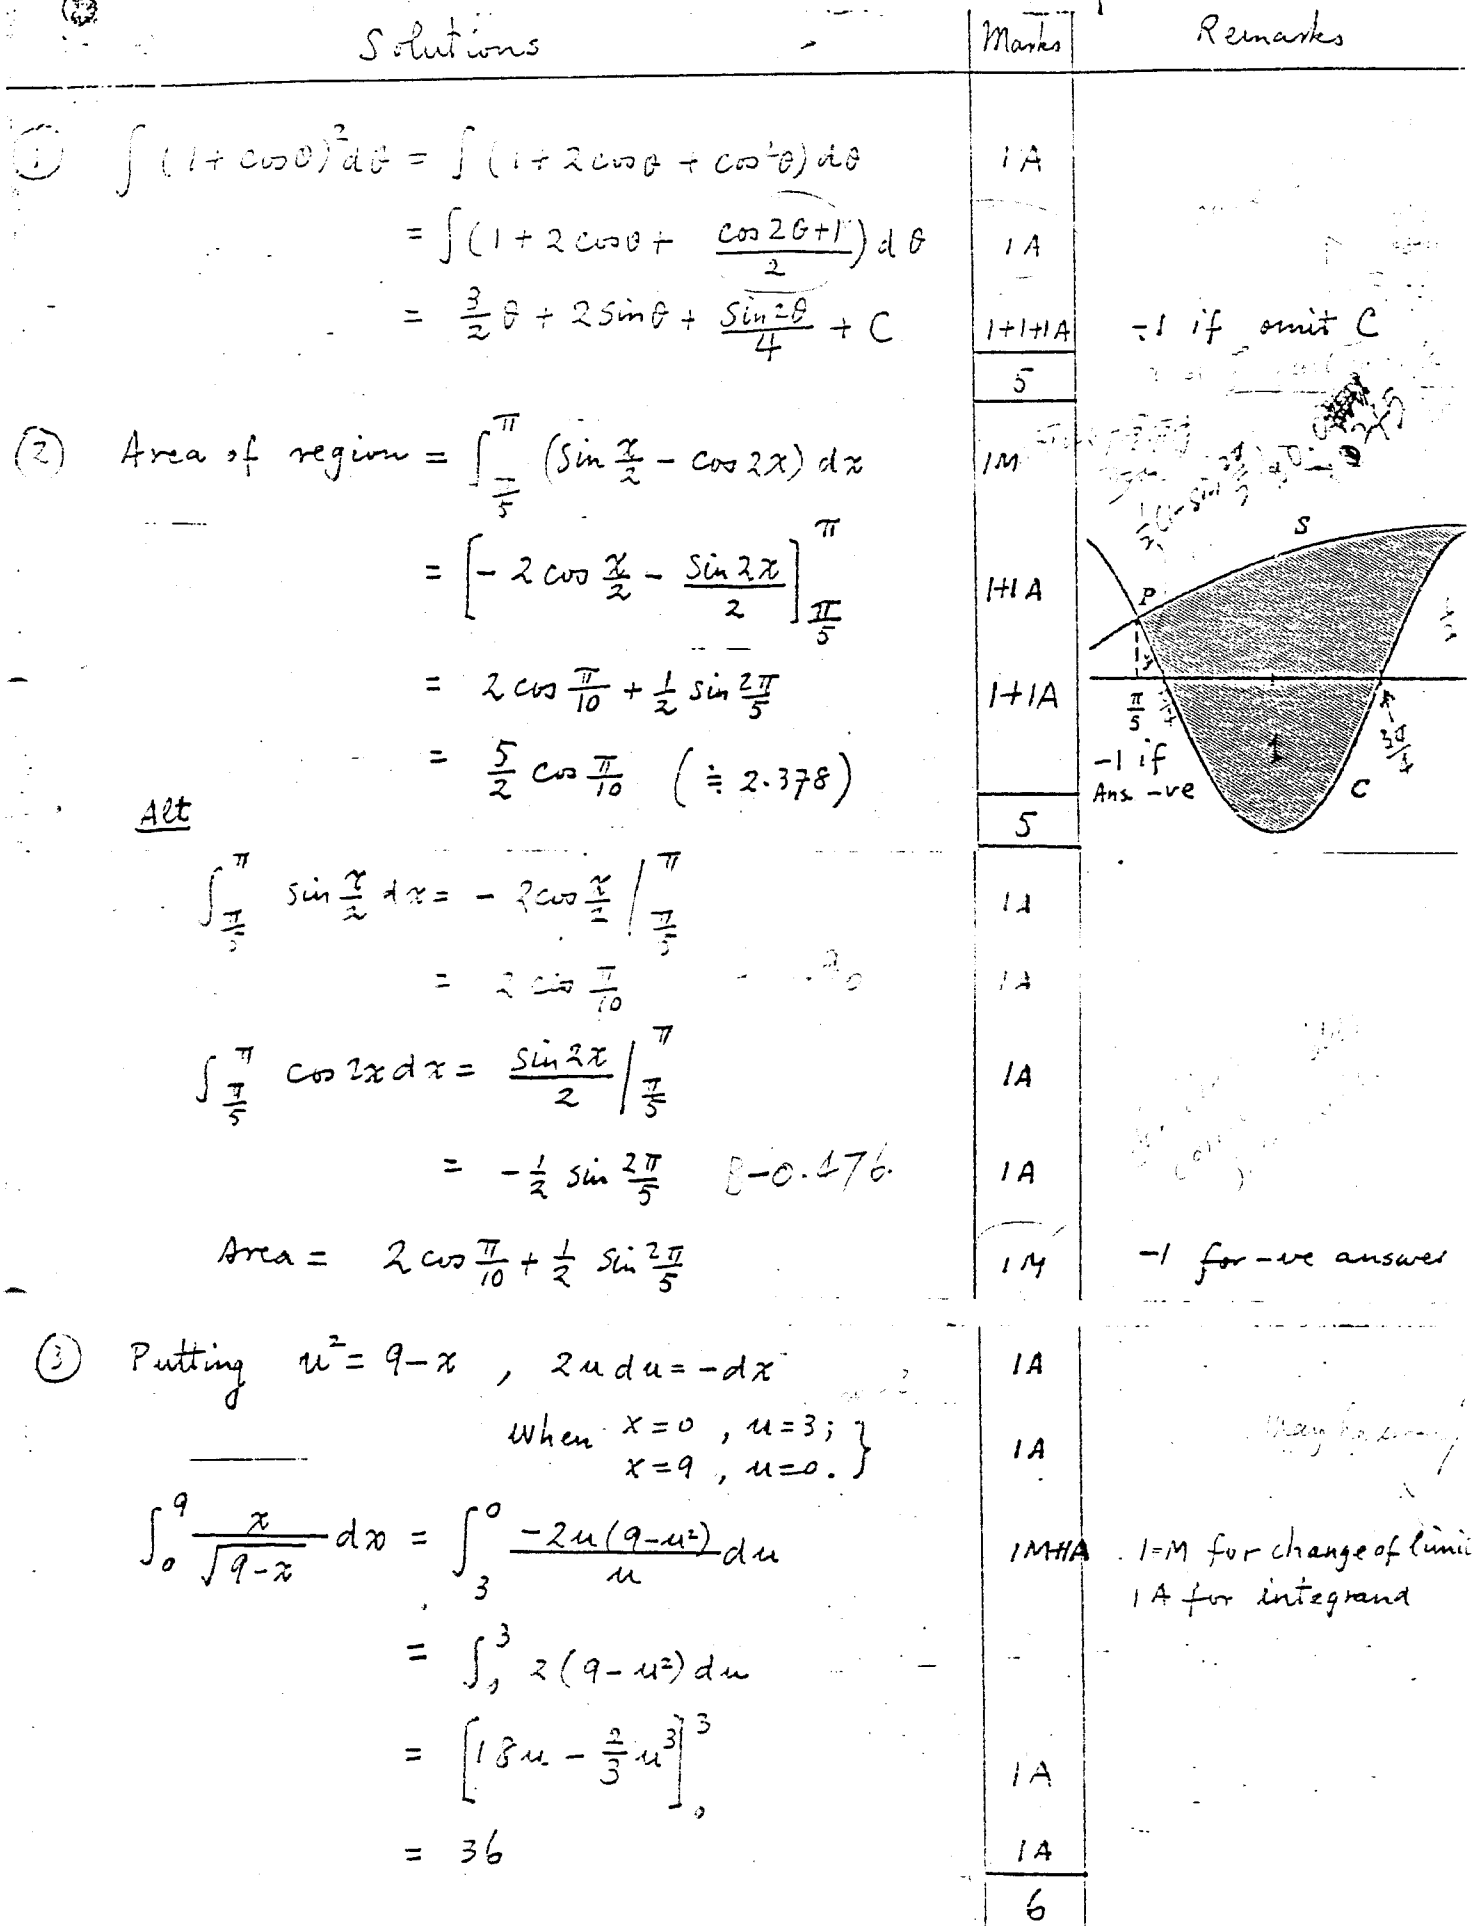 Solutions Marks Remarks
① ∫(1+cosθ)²dθ = ∫(1+2cosθ+cos²θ)dθ 1A
= ∫(1+2cosθ+ (cos2θ+1)/2) dθ 1A
= 3/2 θ + 2sinθ + sin2θ/4 + C 1+1+1A -1 if omit C
5
② Area of region = ∫_{π/5}^{π} (sin x/2 - cos2x) dx 1M
= [-2cos x/2 - sin2x/2]_{π/5}^{π} 1+1A
= 2cos π/10 + 1/2 sin 2π/5 1+1A
= 5/2 cos π/10 (≑ 2.378)
-1 if
Ans. -ve
5
S
P
π/5
3π/4
C
Alt
∫_{π/5}^{π} sin x/2 dx = -2cos x/2 |_{π/5}^{π} 1A
= 2cos π/10 1A
∫_{π/5}^{π} cos2xdx = sin2x/2 |_{π/5}^{π} 1A
= -1/2 sin 2π/5 -0.476 1A
Area = 2cos π/10 + 1/2 sin 2π/5 1M -1 for -ve answer
③ Putting u² = 9-x , 2udu = -dx 1A
When x=0 , u=3; }
x=9 , u=0. } 1A
∫_0^9 x/√(9-x) dx = ∫_3^0 -2u(9-u²)/u du 1M+1A 1-M for change of limit
1A for integrand
= ∫_0^3 2(9-u²)du
= [18u - 2/3 u³]_0^3 1A
= 36 1A
6